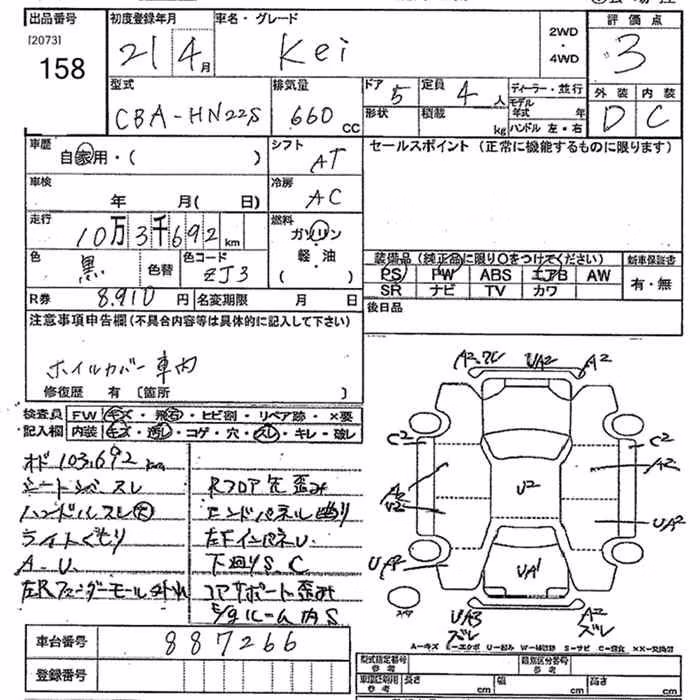 出品番号 初度登録年月 車名・グレード 評価点
[2073]
158 21 4月 Kei 2WD・4WD 3
型式 排気量 ドア 5 定員 4人 ディーラー・並行 外装 内装
CBA-HN22S 660 CC 形状 積載 kg モデル年式 年 D C
ハンドル 左・右
車歴 シフト セールスポイント (正常に機能するものに限ります)
自家用・( ) AT
車検 冷房
年 月( 日) AC
走行 燃料
10万3千692 km ガソリン
色 色コード 軽・油 装備品 (純正品に限り○をつけてください) 新車保証書
黒 色替 ZJ3 ( ) PS PW ABS エアB AW 有・無
SR ナビ TV カワ
R券 8.910 円 名変期限 月 日 後日品
注意事項申告欄(不具合内容等は具体的に記入して下さい)
ホイルカバー車内
修復歴 有 [箇所 ]
検査員 FW キズ・飛石・ヒビ割・リペア跡・×要
記入欄 内装 キズ・汚し・コゲ・穴・スレ・キレ・破レ
オド 103,692 km Rフロア先歪み
シートシバ、スレ エンドパネル曲り
ハンドルスレ大 左FインパネU
ライトくもり 下廻りS、C
A-U コアサポート歪み
左Rフェンダーモール外れ E/gルーム内S
A2 ワレ UA2 A2
C2 C2
A2 U2 A2
U2 UA2
UA2 UA1
UA3 ズレ A2 ズレ
A-キズ E-エクボ U-凹み W-補修跡 S-サビ C-腐食 XX-交換済
車台番号 887266
登録番号
型式指定番号 類別区分番号
参考 参考
車積記用 長さ 幅 高さ
参考 cm cm cm